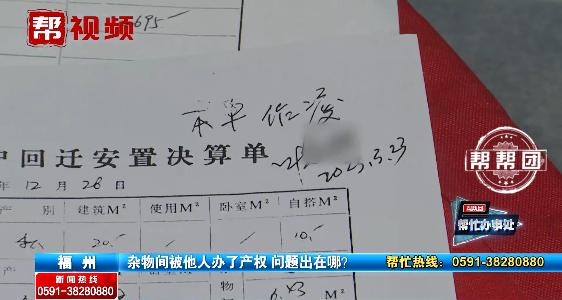 帮视频
695
本单作废
2023.3.23
中回迁安置决算单
年12月26日
别 建筑M² 使用M² 卧室M² 自搭M²
20.- 10.-
物 6.43
帮帮团
帮忙办事处
福州 杂物间被他人办了产权 问题出在哪? 帮忙热线：0591-38280880
新闻热线
0591-38280880